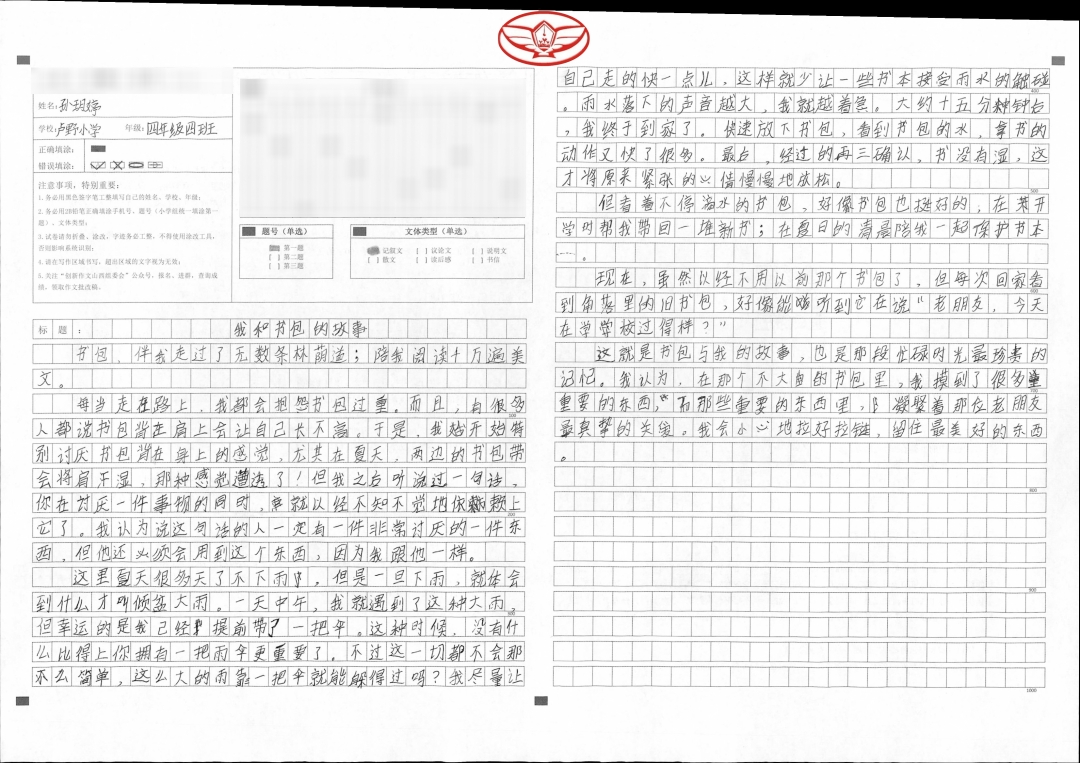 姓名:孙
学校:卢野小学 年级:四年级四班
正确填涂:
错误填涂:
注意事项,特别重要:
1.务必用黑色签字笔工整填写自己的姓名、学校、年级;
2.务必用2B铅笔正确填涂手机号、题号(小学组统一填涂第一
题)、文体类型;
3.试卷请勿折叠、涂改,字迹务必工整,不得使用涂改工具,
否则影响系统识别;
4.请在写作区域书写,超出区域的文字视为无效;
5.关注“创新作文山西组委会”公众号,报名、进群、查询成
绩、领取作文批改稿。
题号(单选)
第一题
[ ] 第二题
[ ] 第三题
文体类型(单选)
记叙文 [ ] 议论文 [ ] 说明文
[ ] 散文 [ ] 读后感 [ ] 书信
标题: 我和书包的故事
书包,伴我走过了无数条林荫道;陪我阅读十万遍美
文。
每当走在路上,我都会抱怨书包过重。而且,有很多
100
人都说书包背在肩上会让自己长不高。于是,我始开始特
别讨厌书包背在身上的感觉,尤其在夏天,两边的书包带
会将肩干湿,那种感觉遭透了!但我之后听说过一句话,
你在讨厌一件事物的同时,就以经不知不觉地依赖上
200
它了。我认为说这句话的人一定有一件非常讨厌的一件东
西,但他还必须会用到这个东西,因为我跟他一样。
这里夏天很多天了不下雨,但是一旦下雨,就体会
到什么才叫倾盆大雨。一天中午,我就遇到了这种大雨,
300
但幸运的是我已经提前带了一把伞。这种时候,没有什
么比得上你拥有一把雨伞更重要了。不过这一切都不会那
么简单,这么大的雨靠一把伞就能躲得过吗?我尽量让
自己走的快一点儿,这样就少让一些书本接受雨水的触碰
400
。雨水落下的声音越大,我就越着急。大约十五分钟后
,我终于到家了。快速放下书包,看到书包的水,拿书的
动作又快了很多。最后,经过的再三确认,书没有湿,这
才将原来紧张的心情慢慢地放松。
500
但看着不停滴水的书包,好像书包也挺好的,在某开
学时帮我带回一堆新书;在夏日的清晨陪我一起保护书本
……。
现在,虽然以经不用以前那个书包了,但每次回家看
600
到角落里的旧书包,好像能听到它在说“老朋友,今天
在学校过得样?”
这就是书包与我的故事,也是那段忙碌时光最珍贵的
记忆。我认为,在那个不大的书包里,我摸到了很多
重要的东西,而那些重要的东西里,凝聚着那位老朋友
最真挚的关爱。我会小心地拉好拉链,留住最美好的东西
。
800
900
1000